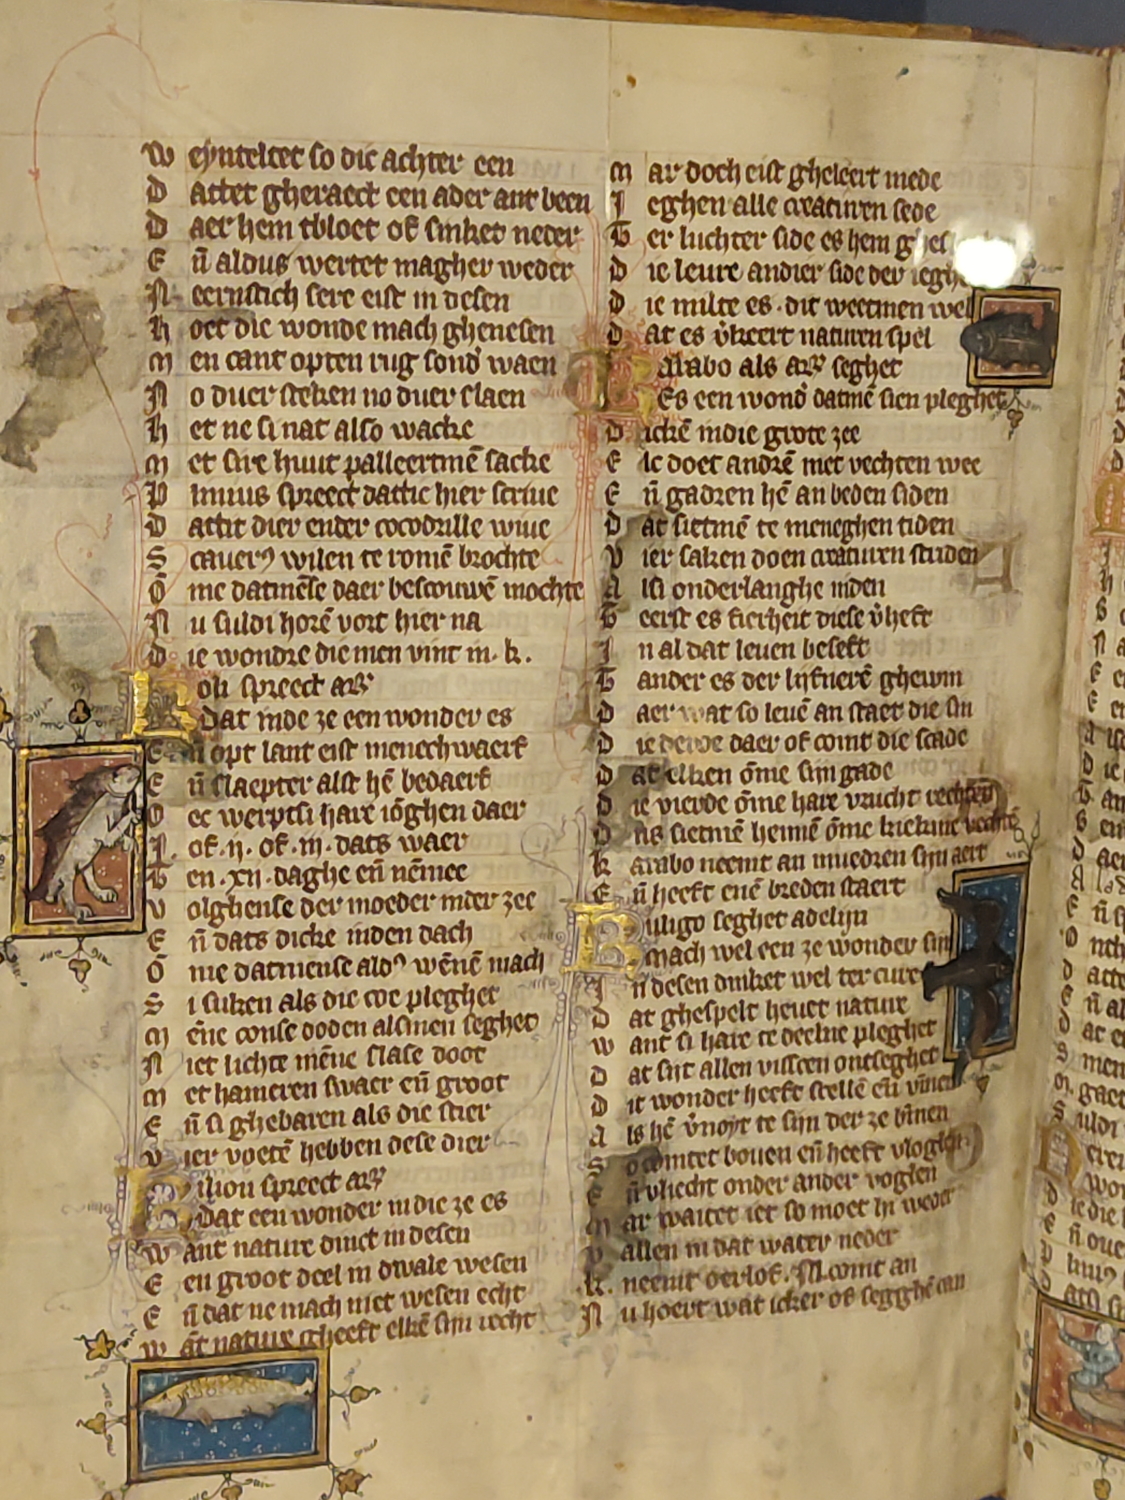 W eynteltet so die achter een
D attet gheraect een ader ant been
D aer hem tbloet of sinket neder
E ñ aldus wertet magher weder
N eernstich sere eist in desen
H oet die wonde mach ghenesen
M en cant opten rug sond' waen
N o duer steken no duer slaen
H et ne si nat also wacke
M et sire huut palleertmē sacke
P linius spreect dattic hier scriue
D attit dier ender cocodrille wiue
S caueru' wilen te romē brochte
Ō me datmēse daer bescouwē mochte
N u suldi horē vort hier na
D ie wondre die men vint in .k.
K oli spreect ar'
Dat inde ze een wonder es
E ñ opt lant eist menechwaerf
E ñ slaepter alst hē bedaerf
O ec werptsi hare iōghen daer
I . of .ij. of .iij. dats waer
B en .xij. daghe eñ nēmee
V olghense der moeder inder zee
E ñ dats dicke inden dach
Ō me datmense ald' wēnē mach
S i suken als die coe pleghet
M ēne conse doden alsmen seghet
N iet lichte mēne slase doot
M et hameren swaer eñ groot
E ñ si ghebaren als die stier
V ier voetē hebben dese dier
K ilion spreect ar'
Dat een wonder in die ze es
W ant nature dinct in desen
E en groot deel in dwale wesen
E ñ dat ne mach niet wesen echt
W āt nature gheeft elkē sijn recht
M ar doch eist gheleert mede
I eghen alle creaturen sede
T er luchter side es hem
D ie leure andier side der ieghe
D ie milte es . dit weetmen wel
D at es v'keert naturen spel
K arabo als ar' seghet
Es een wond' datmē sien pleghet
D ickē in die grote zee
E lc doet andrē met vechten wee
E ñ gadren hē an beden siden
D at sietmē te meneghen tiden
V ier saken doen creaturen striden
A lsi onderlanghe inden
T eerst es fierheit diese v'heft
I n al dat leuen beseft
T ander es der lijfnerē ghewin
D aer wat so leuē an staet die sin
D ie derde daer of comt die scade
D at elken ōme sijn gade
D ie vierde ōme hare vrucht vechten
D us sietmē hennē ōme kiekine vechtē
K arabo neemt an muedren sijn aert
E ñ heeft enē breden staert
K iligo seghet adelijn
Mach wel een ze wonder sijn
I n desen dinket wel ter cure
D at ghespelt heuet nature
W ant si hare te deelne pleghet
D at sijt allen visscen ontseghet
D it wonder heeft scellē eñ vinen
A ls hē v'noyt te sijn der ze binen
S o comtet bouen eñ heeft vloglen
E ñ vliecht onder ander voglen
M ar waitet iet so moet in weder
V allen in dat water neder
K. neemt oerlof. M. comt an
N u hoert wat icker of segghē can